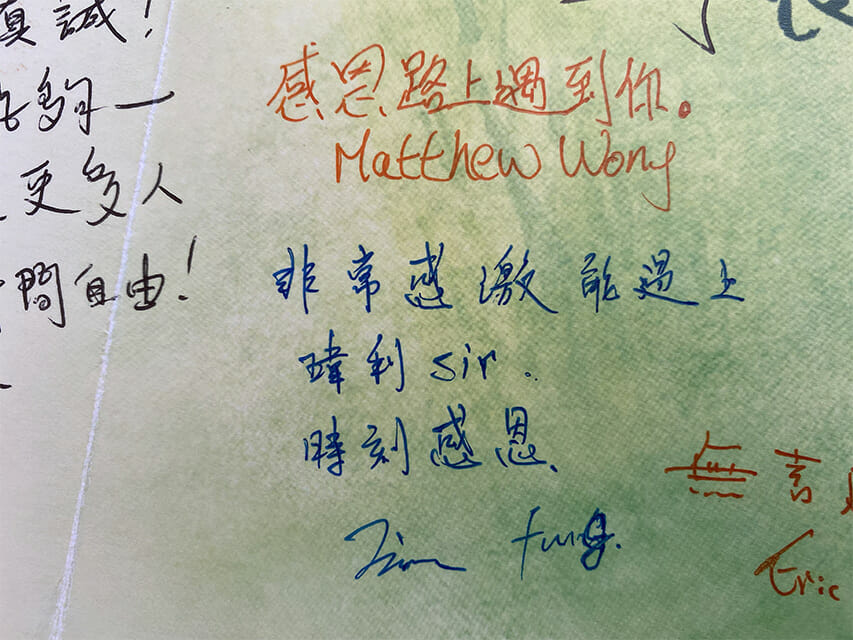 真誠！
夠一
更多人
間自由！
感恩路上遇到你。
Matthew Wong
非常感激能遇上
瑋利 sir.
時刻感恩、
Fung.
無言
Eric